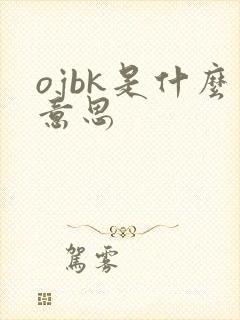 ojbk是什麼
意思
駕霧